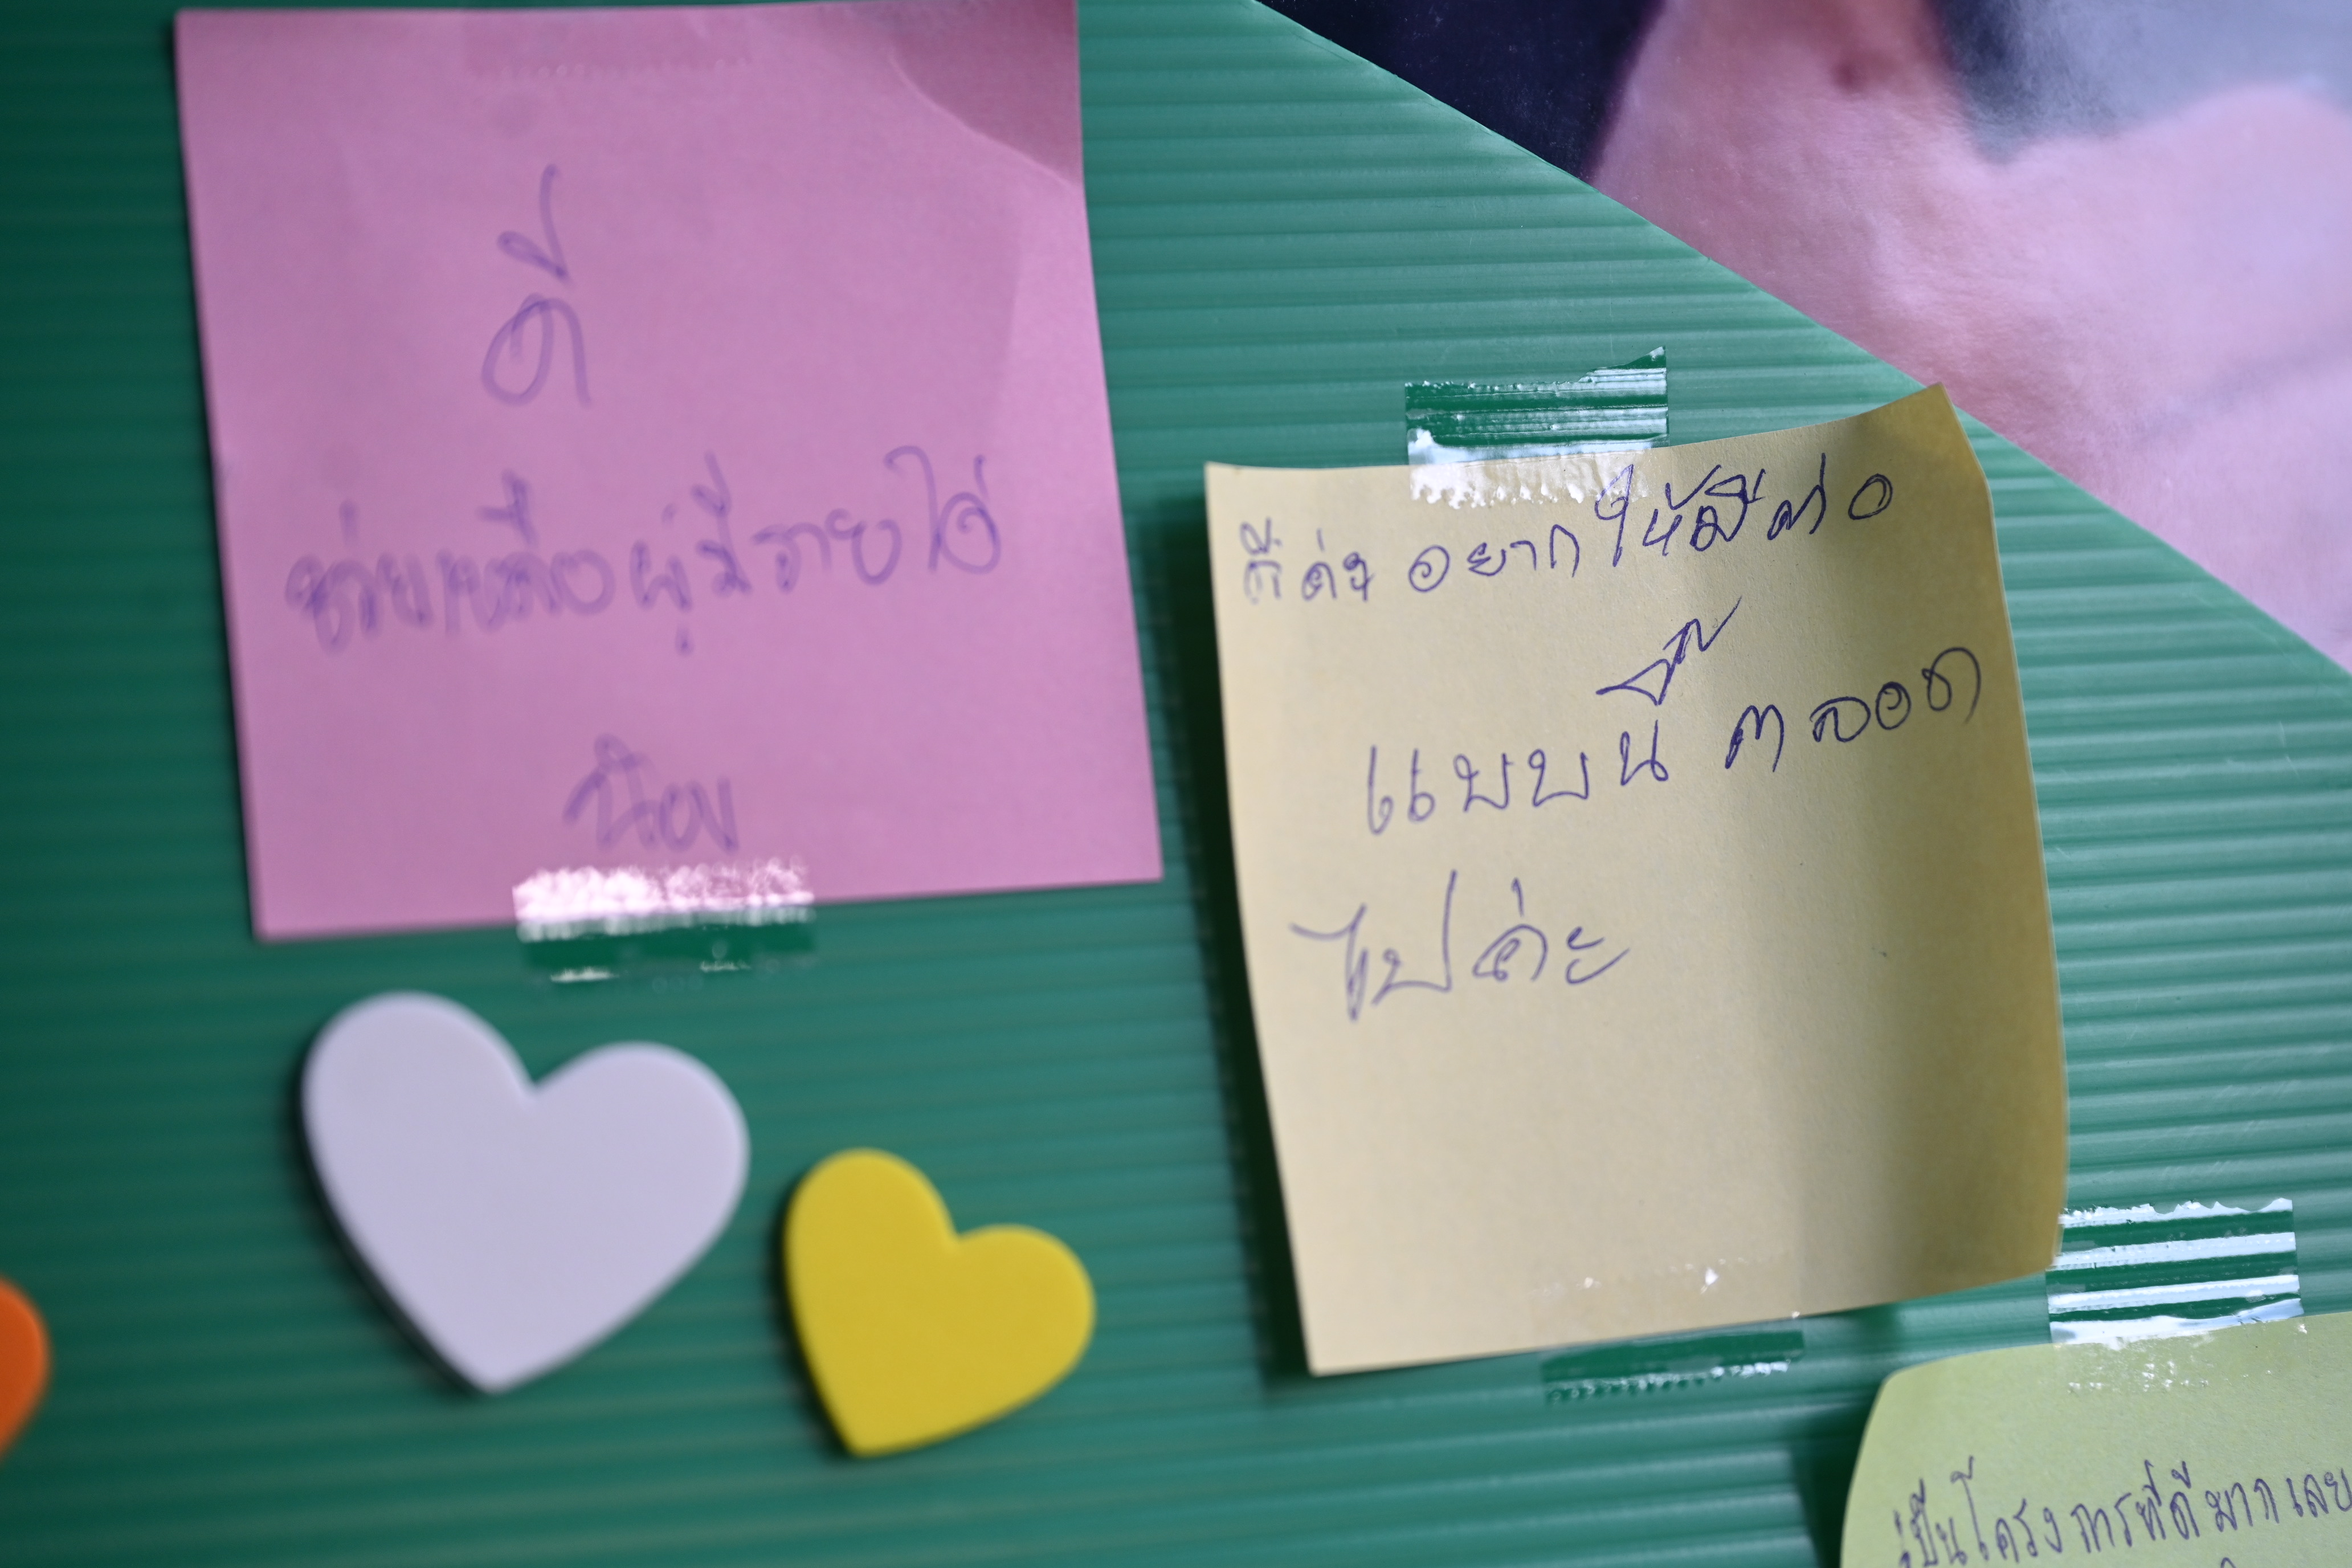 ดี
ช่วยเหลือผู้มีรายได้
น้อย
ดีค่ะ อยากให้มีต่อ
แบบนี้ ตลอด
ไปค่ะ
เป็นโครงการที่ดีมากเลย